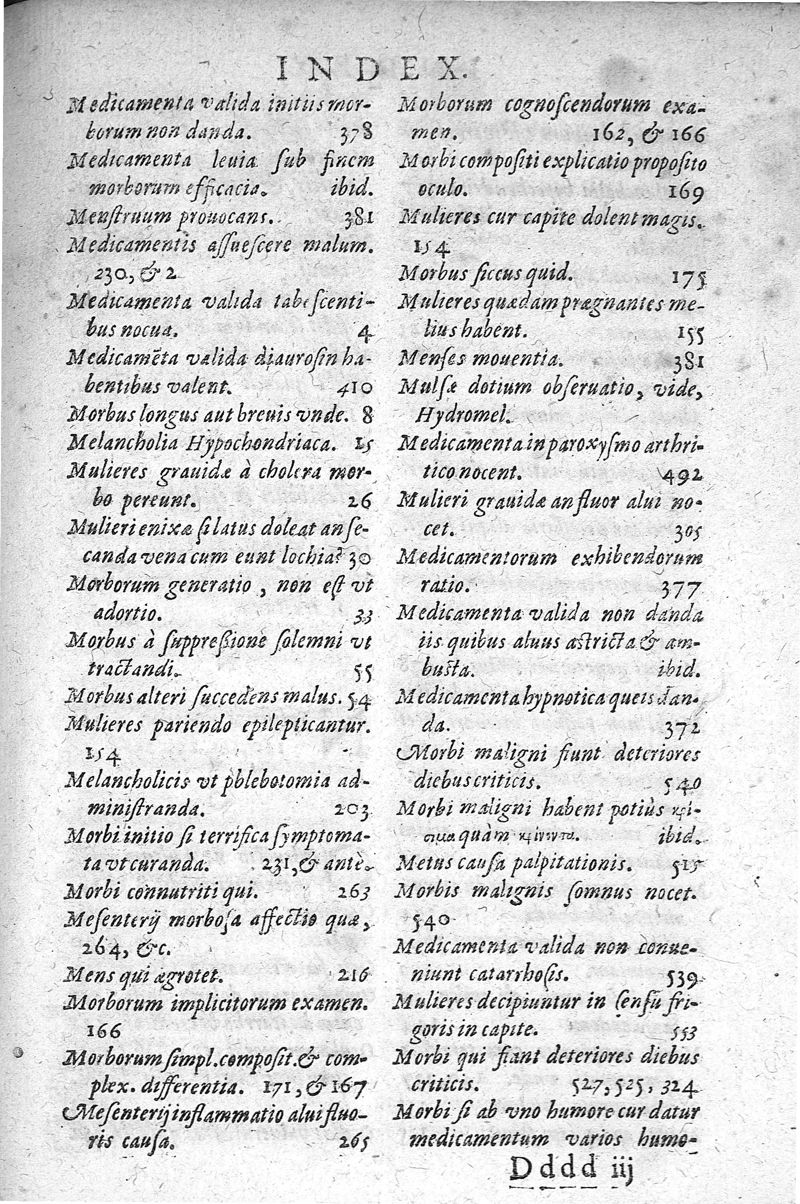 INDEX.
Medicamenta valida initiis mor-
borum non danda. 378
Medicamenta leuia sub finem
morborum efficacia. ibid.
Menstruum prouocans. 381
Medicamentis assuescere malum.
230, & 2
Medicamenta valida tabescenti-
bus nocua. 4
Medicamẽta valida diaurosin ha-
bentibus valent. 410
Morbus longus aut breuis vnde. 8
Melancholia Hypochondriaca. 15
Mulieres grauidæ à cholera mor-
bo pereunt. 26
Mulieri enixæ si latus doleat an se-
canda vena cum eunt lochia? 30
Morborum generatio, non est vt
adortio. 33
Morbus à suppreßione solemni vt
tractandi. 55
Morbus alteri succedens malus. 54
Mulieres pariendo epilepticantur.
154
Melancholicis vt phlebotomia ad-
ministranda. 203
Morbi initio si terrifica symptoma-
ta vt curanda. 231, & antè.
Morbi connutriti qui. 263
Mesenterij morbosa affectio quæ,
264, &c.
Mens qui ægrotet. 216
Morborum implicitorum examen.
166
Morborum simpl. composit. & com-
plex. differentia. 171, & 167
Mesenterij inflammatio alui fluo-
ris causa. 265
Morborum cognoscendorum exa-
men. 162, & 166
Morbi compositi explicatio proposito
oculo. 169
Mulieres cur capite dolent magis.
154
Morbus siccus quid. 175
Mulieres quædam prægnantes me-
lius habent. 155
Menses mouentia. 381
Mulsæ dotium obseruatio, vide,
Hydromel.
Medicamenta in paroxysmo arthri-
tico nocent. 492
Mulieri grauidæ an fluor alui no-
cet. 305
Medicamentorum exhibendorum
ratio. 377
Medicamenta valida non danda
iis quibus aluus astricta & am-
busta. ibid.
Medicamenta hypnotica queis dan-
da. 372
Morbi maligni fiunt deteriores
diebus criticis. 540
Morbi maligni habent potiùs κρί-
σιμα quàm ibid.
Metus causa palpitationis. 515
Morbis malignis somnus nocet.
540
Medicamenta valida non conue-
niunt catarrhosis. 539
Mulieres decipiuntur in sensu fri-
goris in capite. 553
Morbi qui fiant deteriores diebus
criticis. 527, 525, 324
Morbi si ab vno humore cur datur
medicamentum varios humo-
Dddd iij